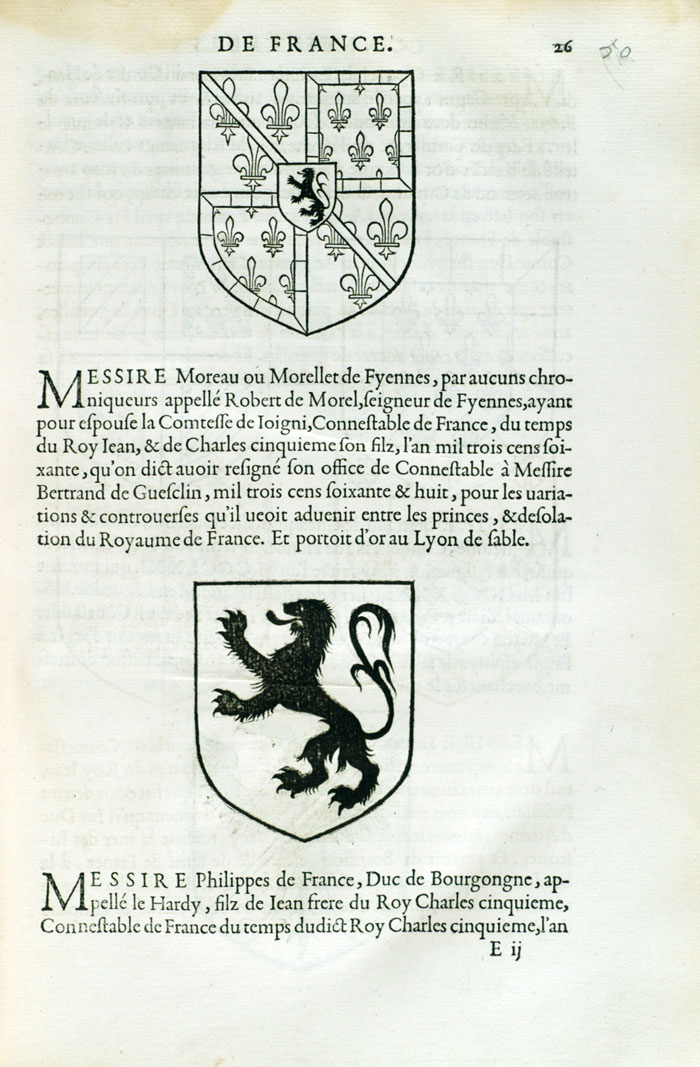 DE FRANCE. 26
MESSIRE Moreau ou Morellet de Fyennes, par aucuns chro-
niqueurs appellé Robert de Morel, ſeigneur de Fyennes, ayant
pour eſpouſe la Comteſſe de Ioigni, Conneſtable de France, du temps
du Roy Iean, & de Charles cinquieme ſon filz, l'an mil trois cens ſoi-
xante, qu'on dict auoir reſigné ſon office de Conneſtable à Meſſire
Bertrand de Gueſclin, mil trois cens ſoixante & huit, pour les uaria-
tions & controuerſes qu'il ueoit aduenir entre les princes, & deſola-
tion du Royaume de France. Et portoit d'or au Lyon de ſable.
MESSIRE Philippes de France, Duc de Bourgongne, ap-
pellé le Hardy, filz de Iean frere du Roy Charles cinquieme,
Conneſtable de France du temps dudict Roy Charles cinquieme, l'an
E ij